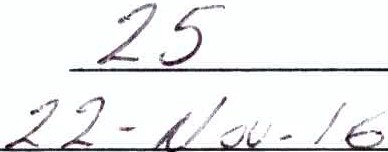 25
22-Nov-16